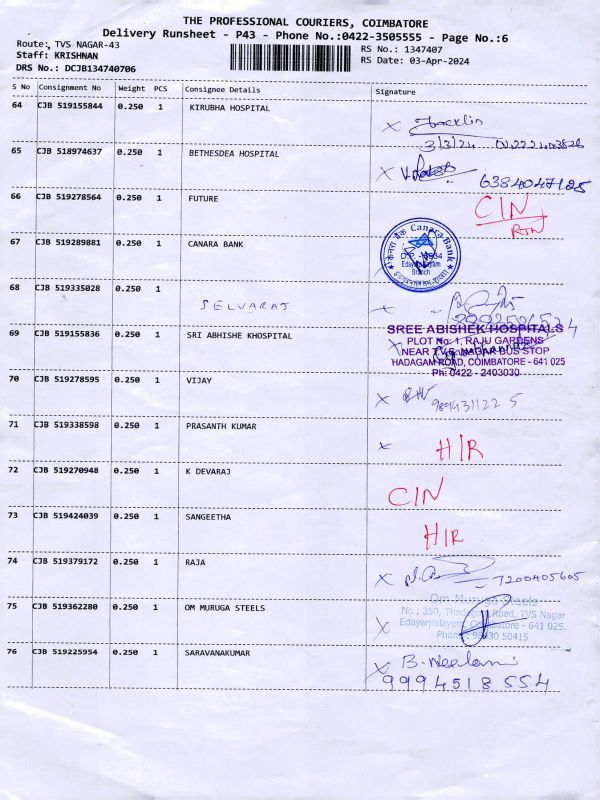 THE PROFESSIONAL COURIERS, COIMBATORE
Delivery Runsheet - P43 - Phone No.:0422-3505555 - Page No.:6
Route: TVS NAGAR-43
RS No.: 1347407
Staff: KRISHNAN
RS Date: 03-Apr-2024
DRS No.: DCJB134740706
S No Consignment No Weight PCS Consignee Details Signature
64 CJB 519155844 0.250 1 KIRUBHA HOSPITAL
X Jacklin
3/3/24
65 CJB 518974637 0.250 1 BETHESDEA HOSPITAL
X 6384047185
66 CJB 519278564 0.250 1 FUTURE
CIN
RTN
67 CJB 519289881 0.250 1 CANARA BANK
केनरा बैंक Canara Bank
Edayarpalayam
Branch
68 CJB 519335028 0.250 1
SELVARAJ
69 CJB 519155836 0.250 1 SRI ABHISHE KHOSPITAL
SREE ABISHEK HOSPITALS
PLOT No: 1, RAJU GARDENS
NEAR T.V.S. NAGAR BUS STOP
HADAGAM ROAD, COIMBATORE - 641 025
Ph: 0422 - 2403030
70 CJB 519278595 0.250 1 VIJAY
X 9894311225
71 CJB 519338598 0.250 1 PRASANTH KUMAR
X H/R
72 CJB 519270948 0.250 1 K DEVARAJ
CIN
73 CJB 519424039 0.250 1 SANGEETHA
H/R
74 CJB 519379172 0.250 1 RAJA
X 7200405605
75 CJB 519362280 0.250 1 OM MURUGA STEELS
Om Muruga Steels
No : 350, Road, TVS Nagar
Edayarpalayam, Coimbatore - 641 025.
X 50415
76 CJB 519225954 0.250 1 SARAVANAKUMAR
X B. Neelani
9994518554